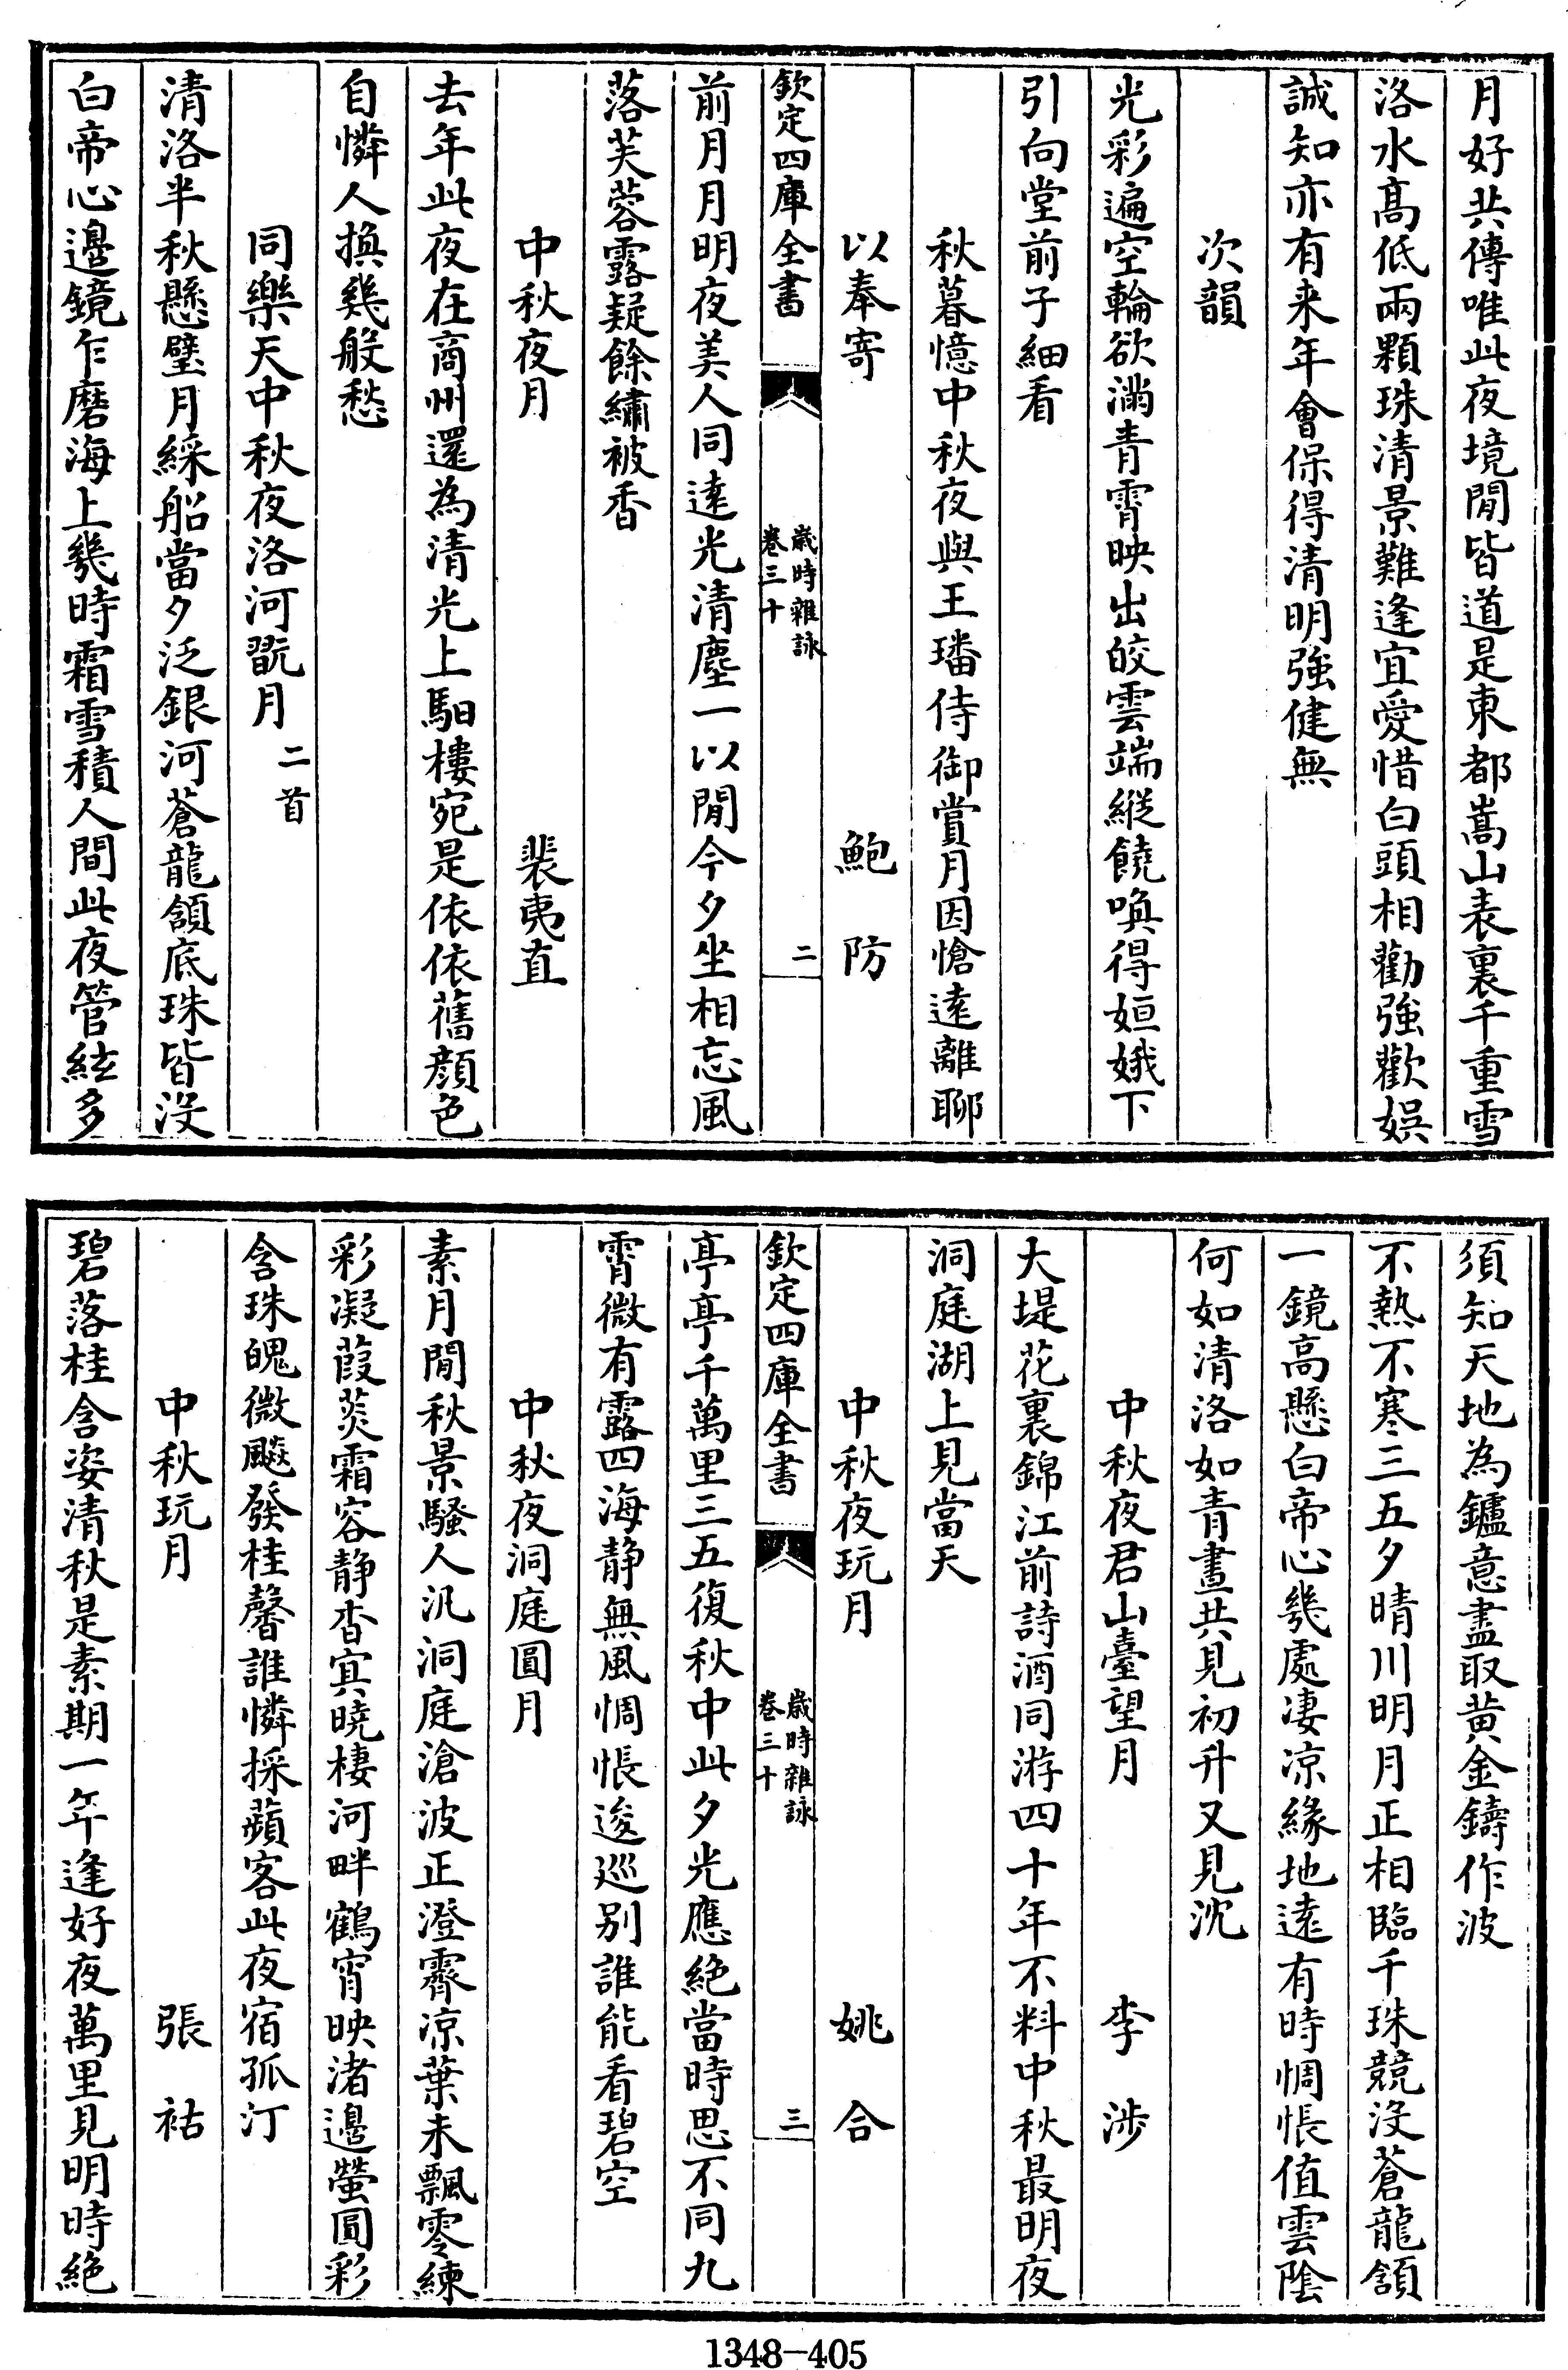 月好共傳唯此夜境閒皆道是東都嵩山表裏千重雪
洛水髙低兩顆珠清景難逢宜愛惜白頭相勸強歡娯
誠知亦有来年會保得清明強健無
次韻
光彩遍空輪欲滿青霄映出皎雲端縱饒喚得姮娥下
引向堂前子細看
秋暮憶中秋夜與王璠侍御賞月因愴逺離聊
以奉寄 鮑防
欽定四庫全書
歲時雜詠
卷三十
二
前月月明夜美人同逺光清塵一以閒今夕坐相忘風
落芙蓉露疑餘繡被香
中秋夜月 裴夷直
去年此夜在商州還為清光上馹樓宛是依依舊顔色
自憐人換幾般愁
同樂天中秋夜洛河翫月二首
清洛半秋懸璧月綵船當夕泛銀河蒼龍頷底珠皆沒
白帝心邉鏡乍磨海上幾時霜雪積人間此夜管絃多
須知天地為鑪意盡取黄金鑄作波
不熱不寒三五夕晴川明月正相臨千珠競沒蒼龍頷
一鏡高懸白帝心幾處凄凉緣地逺有時惆悵值雲陰
何如清洛如青晝共見初升又見沈
中秋夜君山臺望月 李涉
大堤花裏錦江前詩酒同游四十年不料中秋最明夜
洞庭湖上見當天
中秋夜玩月 姚合
欽定四庫全書
歲時雜詠
卷三十
三
亭亭千萬里三五復秋中此夕光應絶當時思不同九
霄微有露四海静無風惆悵逡廵别誰能看碧空
中秋夜洞庭圓月
素月閒秋景騷人汎洞庭滄波正澄霽凉葉未飄零練
彩凝葭菼霜容静杳冥曉棲河畔鶴宵映渚邉螢圓彩
含珠魄微飈發桂馨誰憐採蘋客此夜宿孤汀
中秋玩月 張祜
碧落桂含姿清秋是素期一年逢好夜萬里見明時絶
1348-405